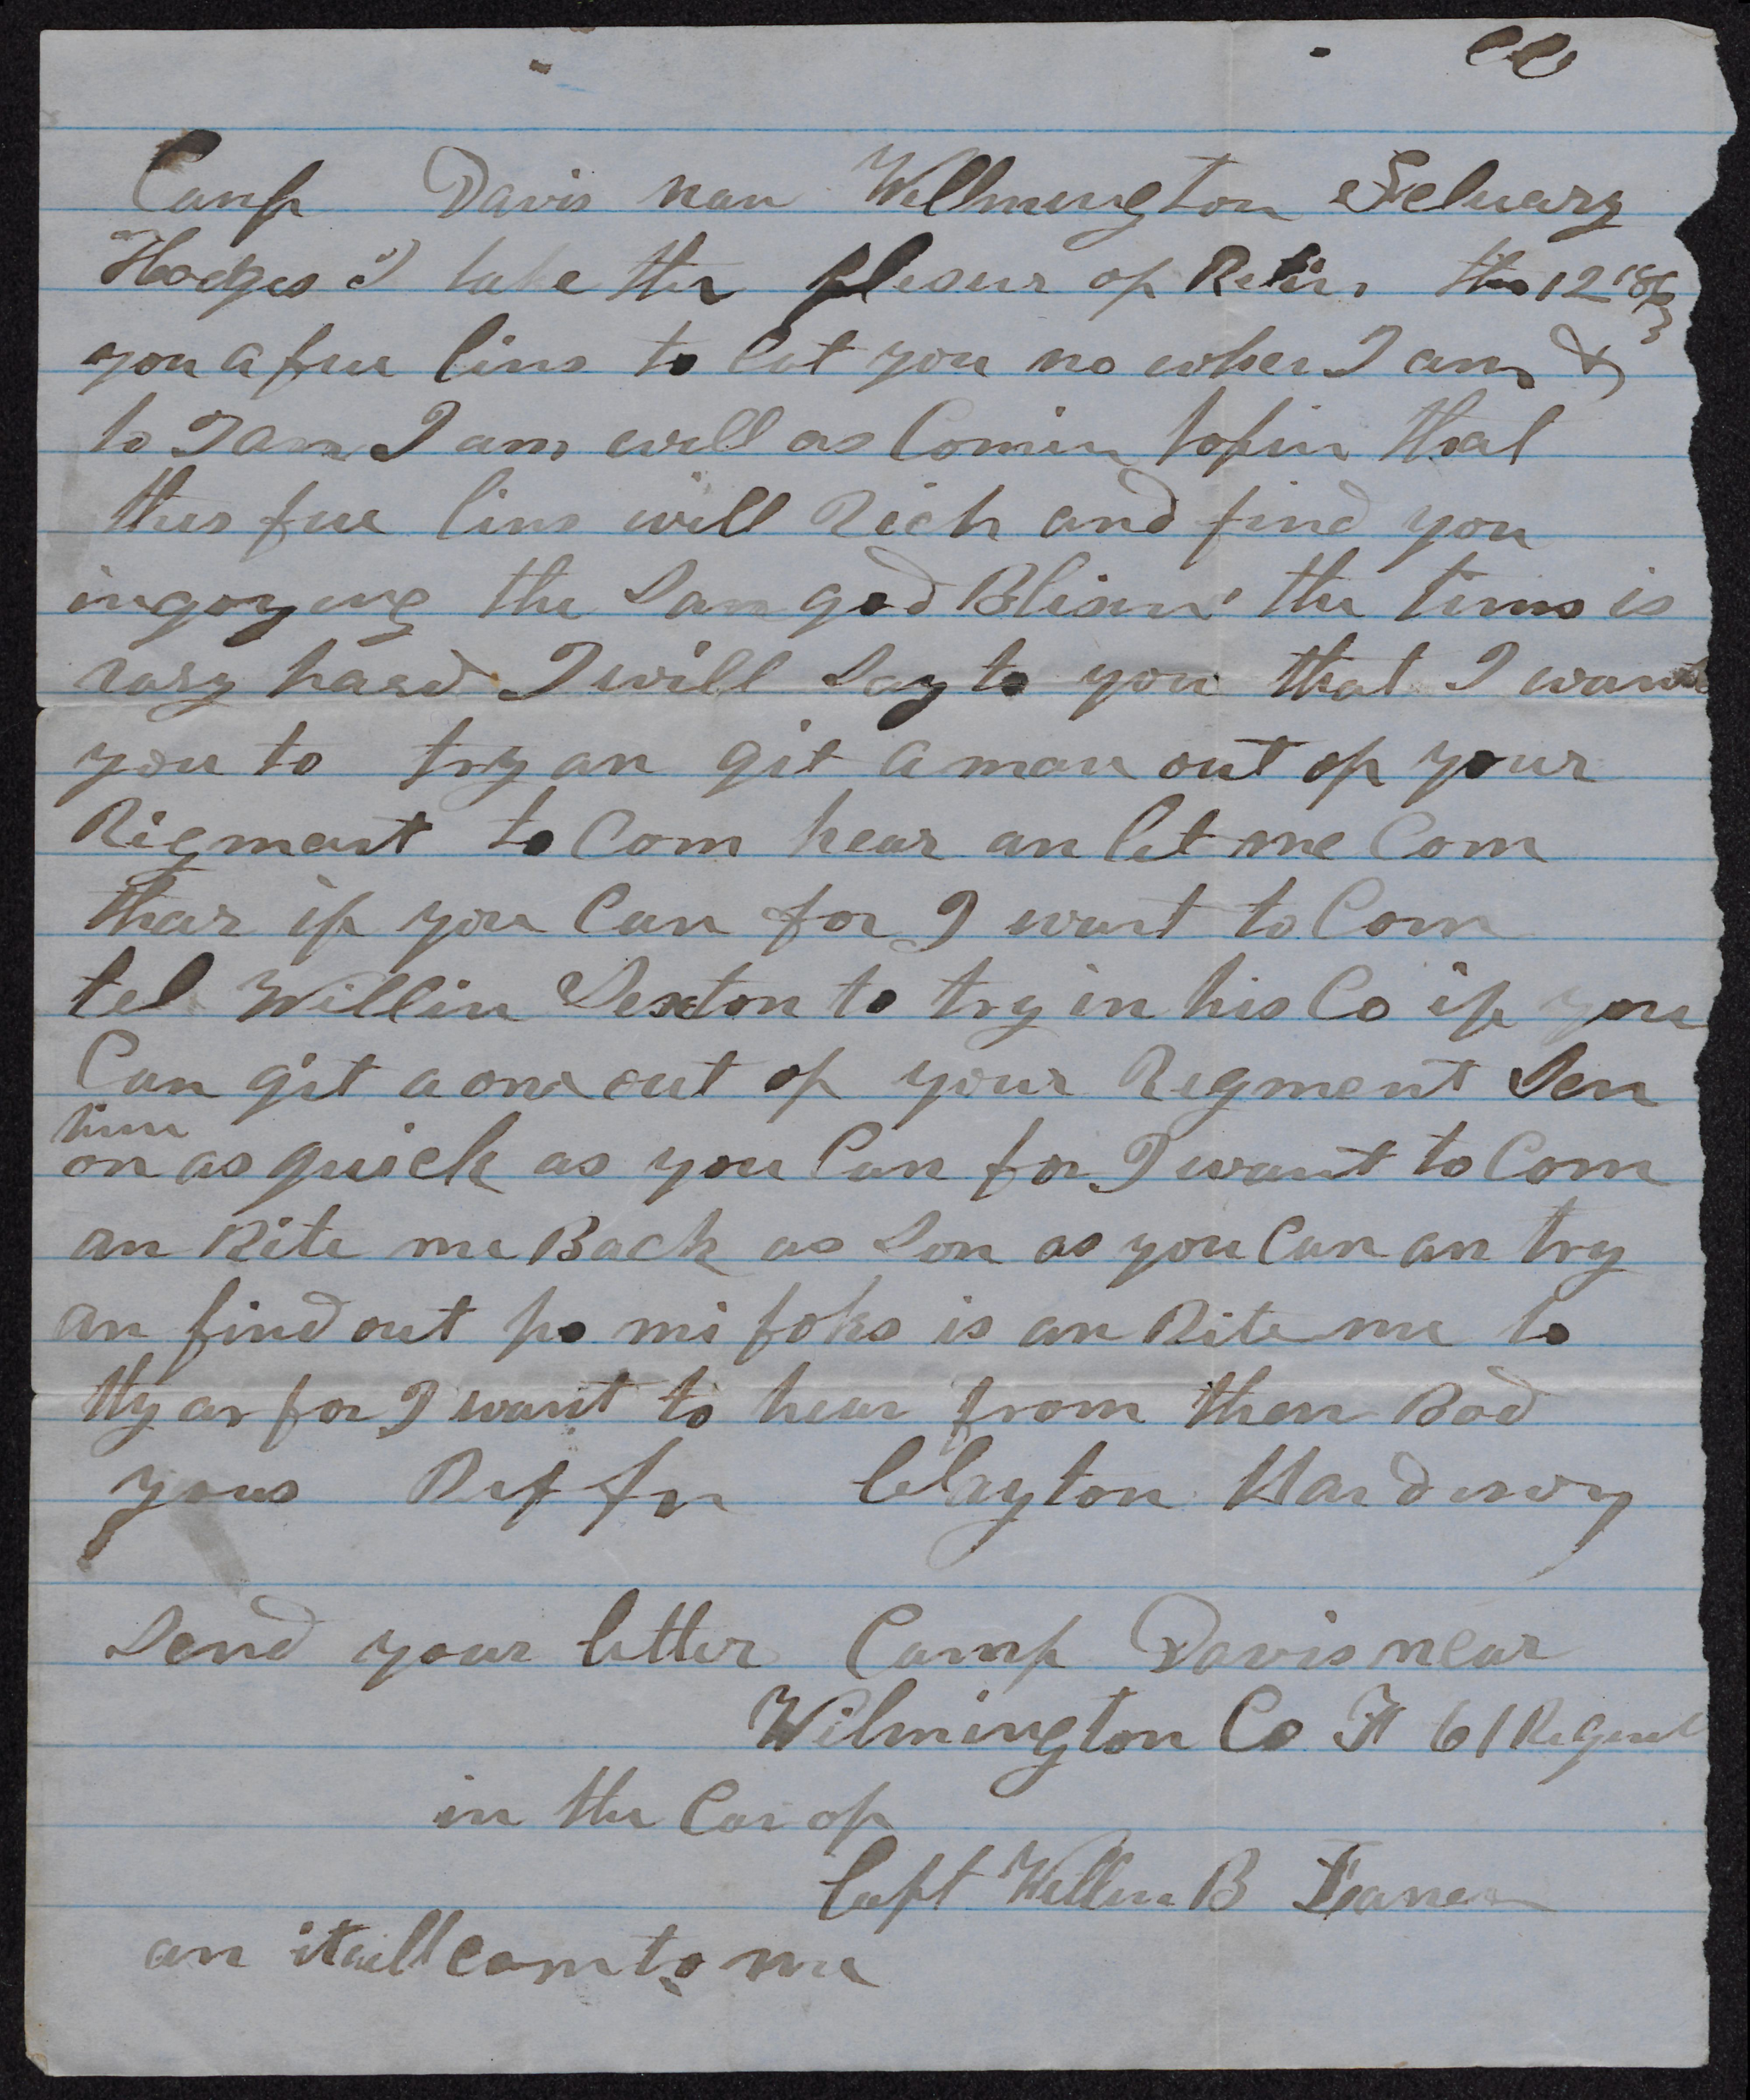 Camp Davis near Willmington Feluary
Hodges I take the plesur of Ritin the 12 1863
you a few lins to let you no wher I am &
ho I am I am will as Comin hopin that
thes few lins will Rich and find you
ingoying the Sam god Blisin the tims is
vary hard I will Say to you that I want
you to try an git a man out of your
Rigment to Com hear an let me Com
thar if you Can for I want to Com
tel Willim Sexton to try in his Co if you
Can git a one out of your Regment Sen
him
on as quick as you Can for I want to Com
an Rite me Back as Son as you Can an try
an find out ho mi foks is an Rite me ho
thy ar for I want to hear from them Bad
yours Clayton
Send your letter Camp Davis near
Wilmington Co H 61 Regment
in the Car of
Capt Willim B Lane
an it will com to me